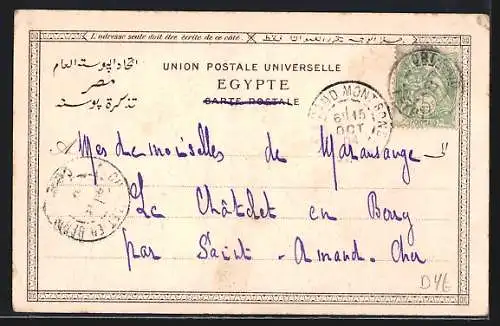 L'adresse seule doit être écrite de ce côté.
اتحاد البوستة العام
مصر
تذكرة بوستة
UNION POSTALE UNIVERSELLE
EGYPTE
CARTE POSTALE
6 15
OCT
Mesdemoiselles de Maransange
Le Châtelet en Berry
par Saint-Amand. Cher
D46